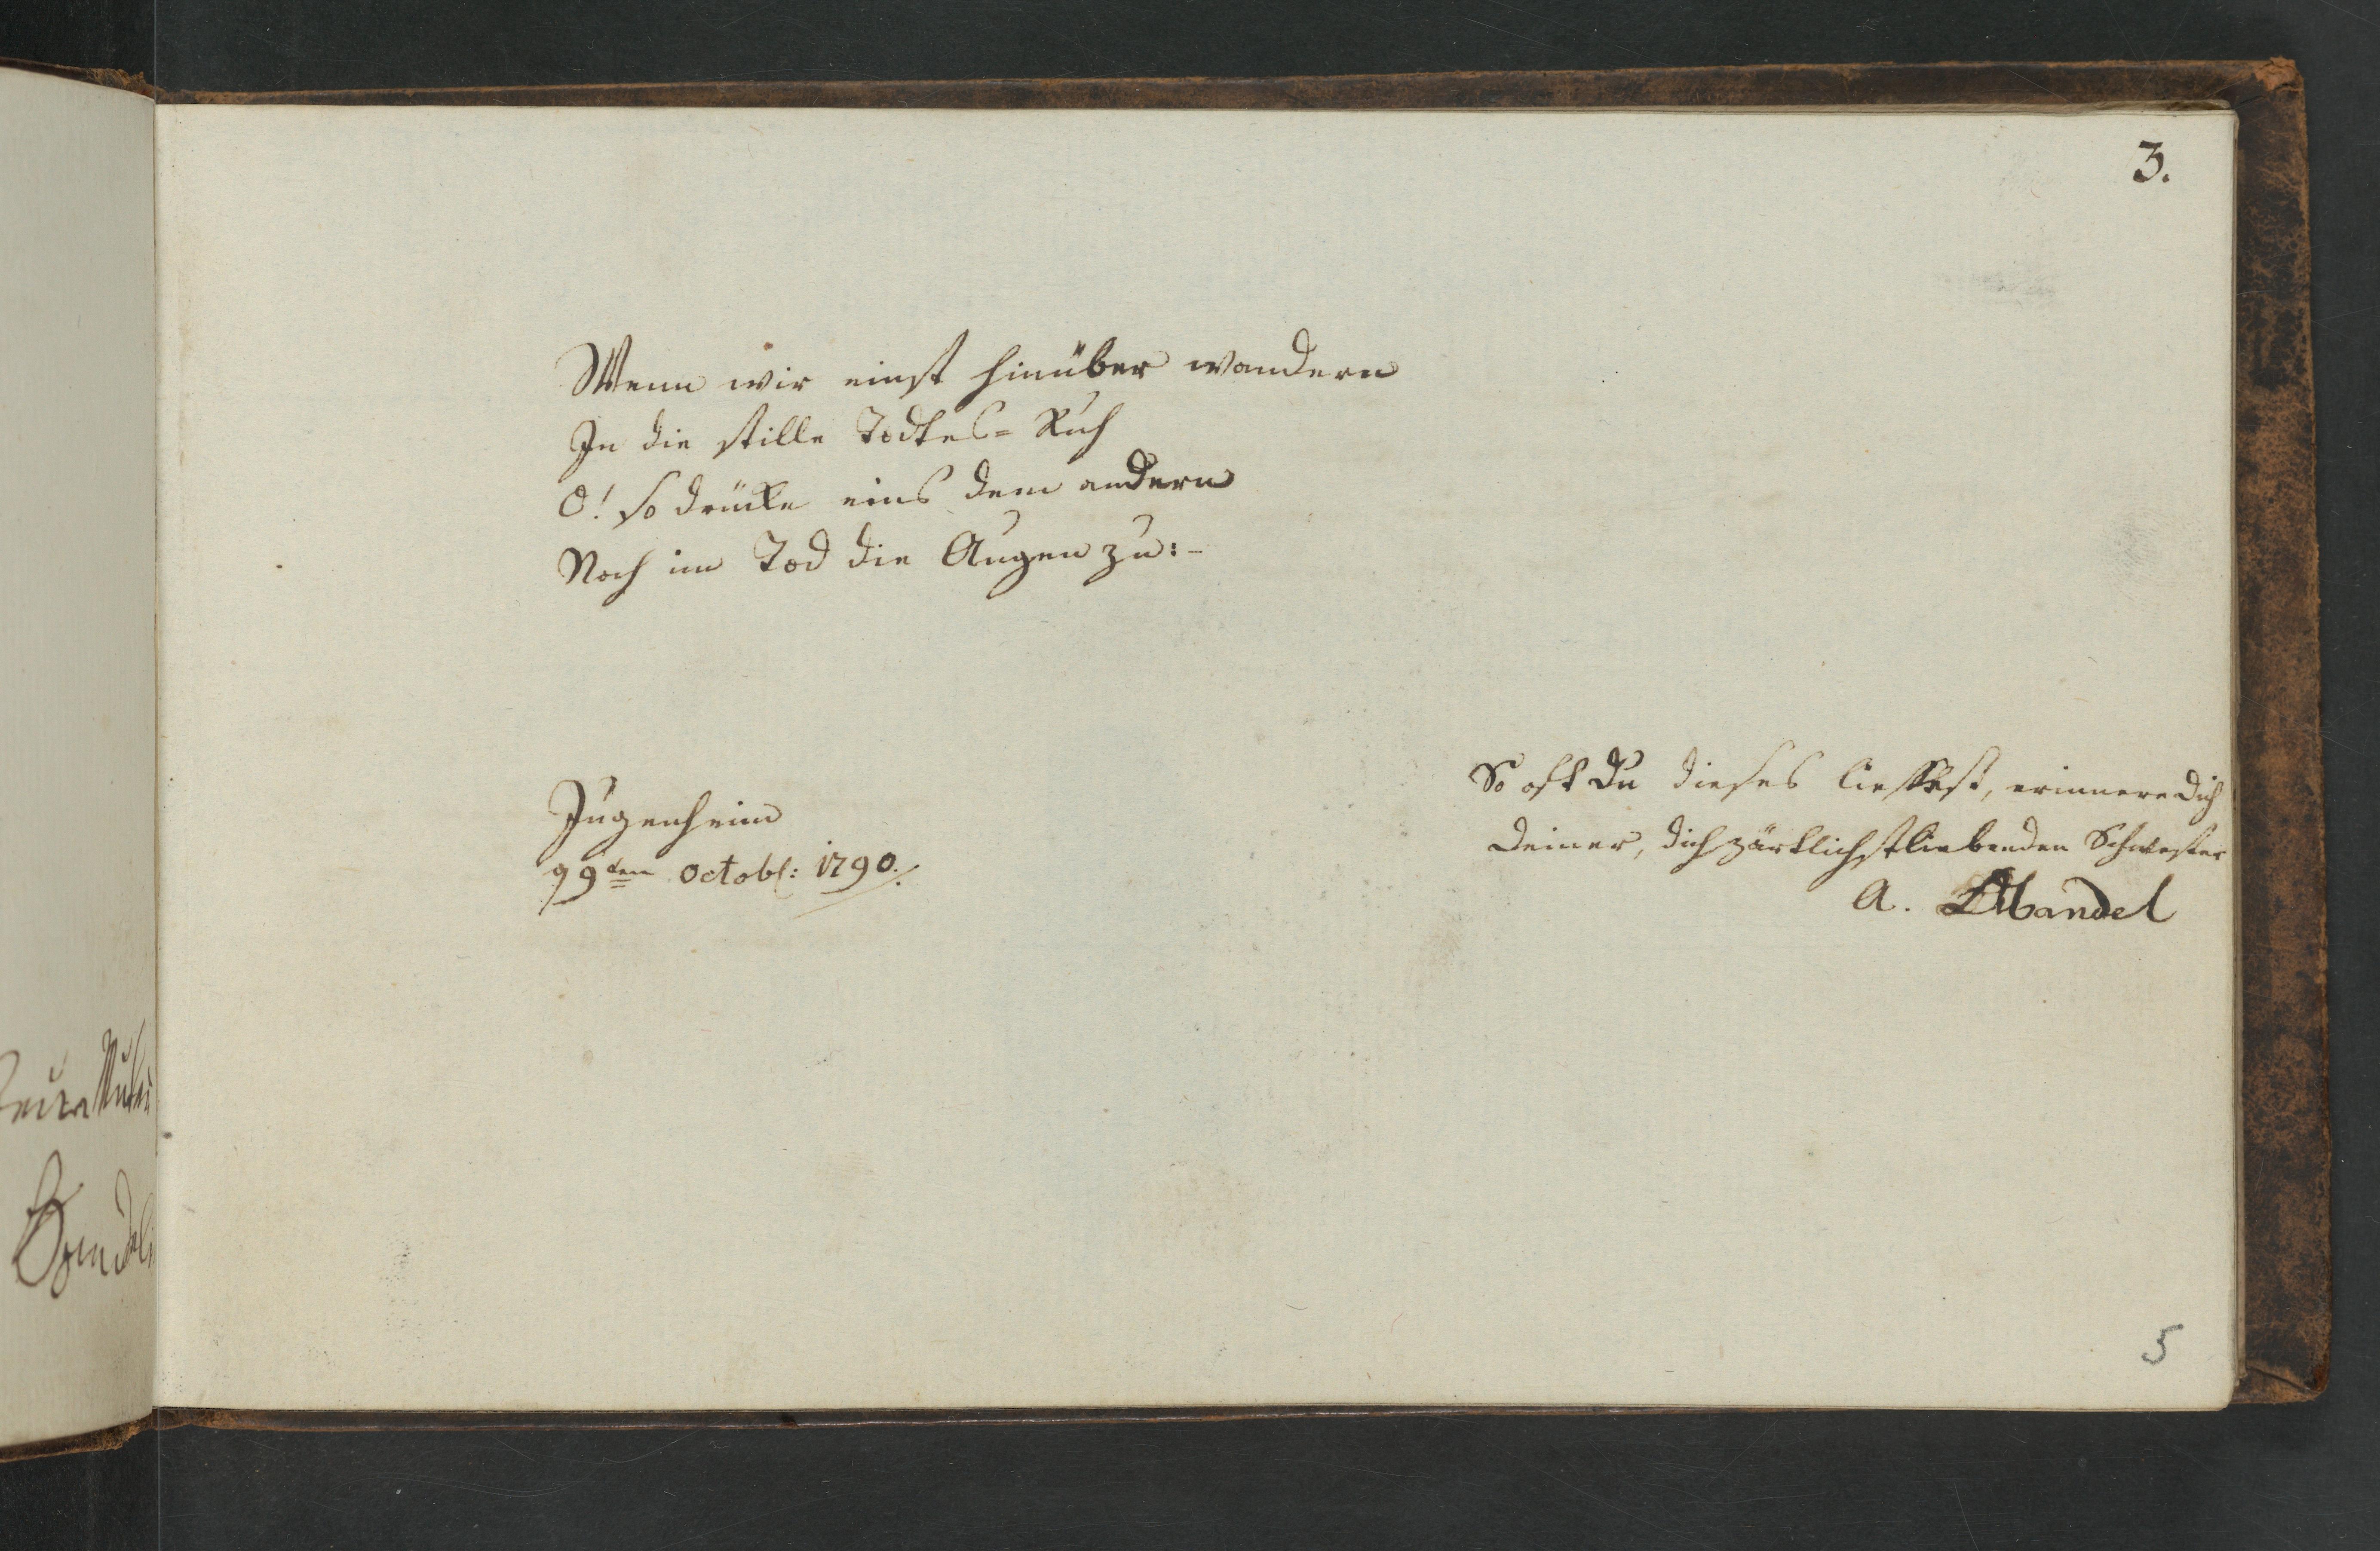 3.
Wenn wir einst hinüber wandern
In die stille Todtes= Ruh
O! so drücke eins dem andern
Noch im Tod die Augen zu:-
Jugenheim
99ten Octobl: 1790.
So oft du dieses liessest, erinnere dich
deiner, dich zärtlichst liebenden Schwester
A. Mandel
5